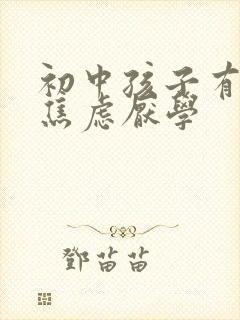 初中孩子有
焦虑厌學
鄧苗苗